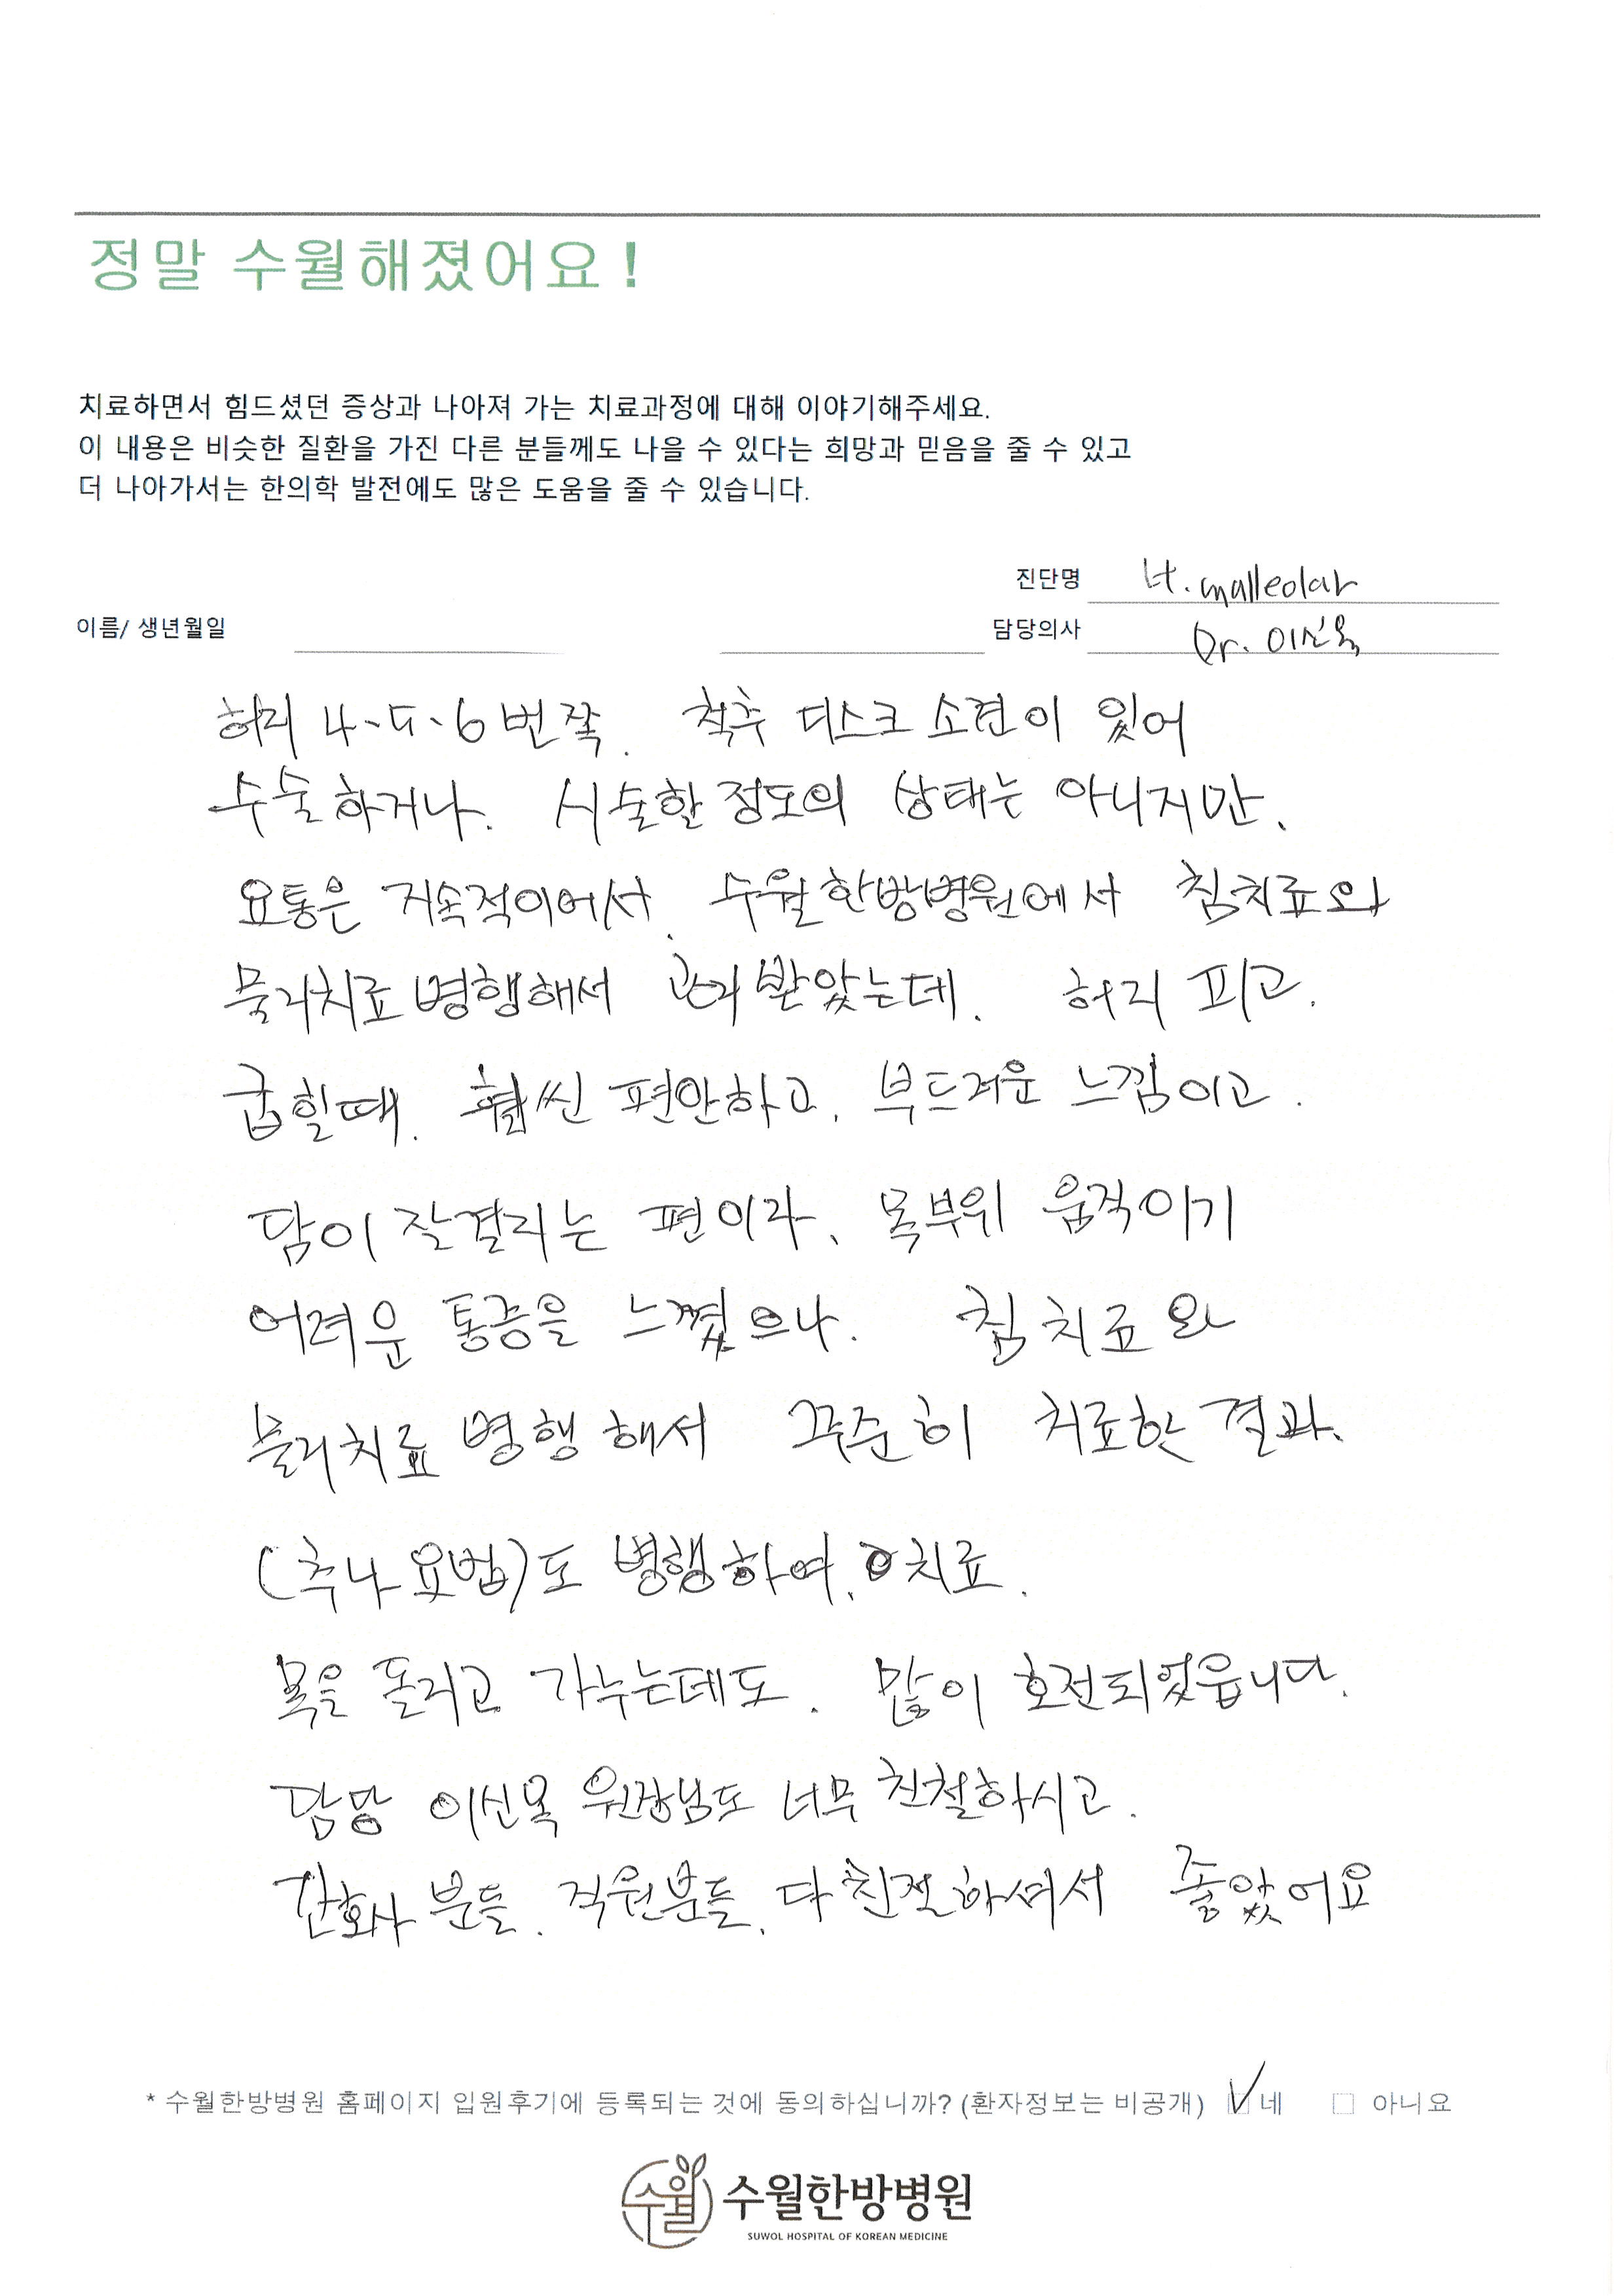 정말 수월해졌어요!
치료하면서 힘드셨던 증상과 나아져 가는 치료과정에 대해 이야기해주세요.
이 내용은 비슷한 질환을 가진 다른 분들께도 나을 수 있다는 희망과 믿음을 줄 수 있고
더 나아가서는 한의학 발전에도 많은 도움을 줄 수 있습니다.
진단명 Lt. malleolar
이름/ 생년월일 담당의사 Dr. 이신옥
허리 4-5-6번쨕. 척추 디스크 소견이 있어
수술하거나. 시술할 정도의 상태는 아니지만.
요통은 지속적이어서. 수월한방병원에서 침치료와
물리치료 병행해서 관리 받았는데. 허리 피고.
굽힐때. 훨씬 편안하고. 부드러운 느낌이고.
담이 잘걸리는 편이라. 목부위 움직이기
어려운 통증을 느꼈으나. 침치료와
물리치료 병행해서 꾸준히 치료한 결과.
(추나 요법)도 병행하여. 치료.
목을 돌리고 가누는데도. 많이 호전되었읍니다.
담당 이신옥 원장님도 너무 친철하시고.
간호사 분들. 직원분들. 다 친절하셔서 좋았어요
* 수월한방병원 홈페이지 입원후기에 등록되는 것에 동의하십니까? (환자정보는 비공개) ☑ 네 □ 아니요
수월 수월한방병원
SUWOL HOSPITAL OF KOREAN MEDICINE